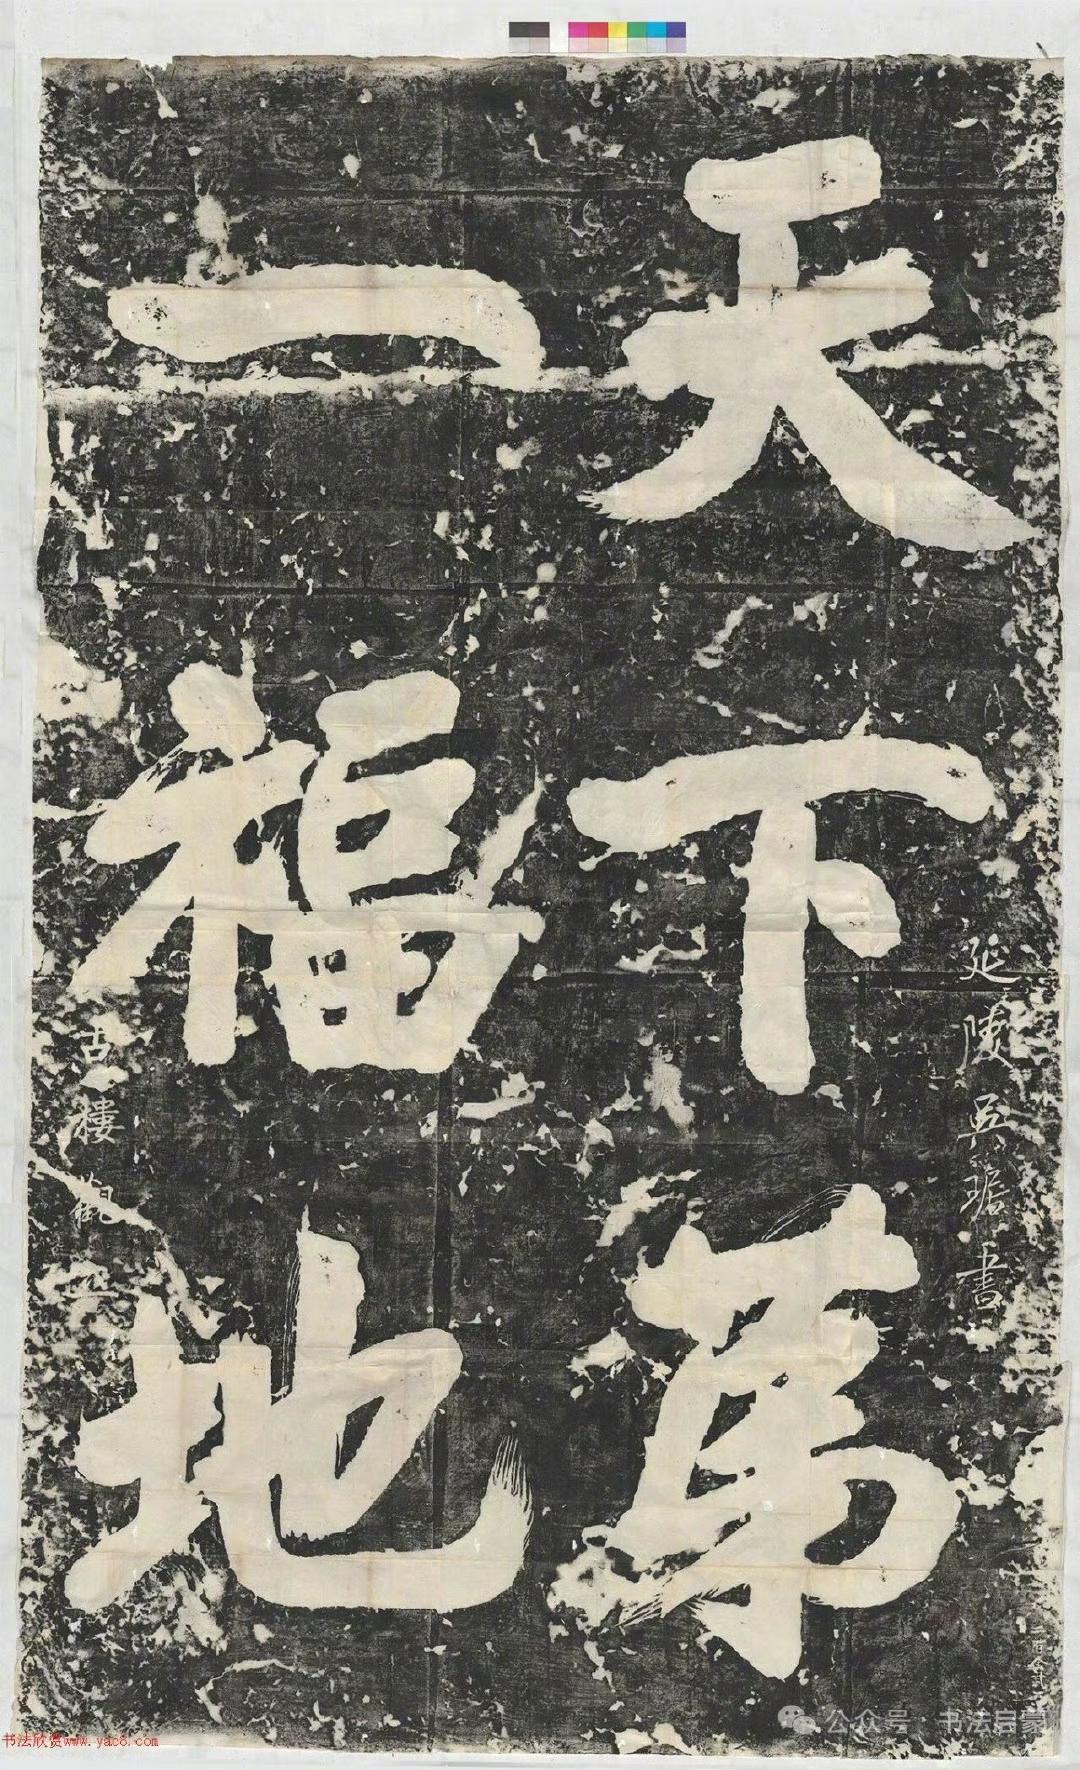 延陵吴琚书
天下苐
一福地
古樓觀
公众号 · 书法启蒙
书法欣赏www.yac8.com